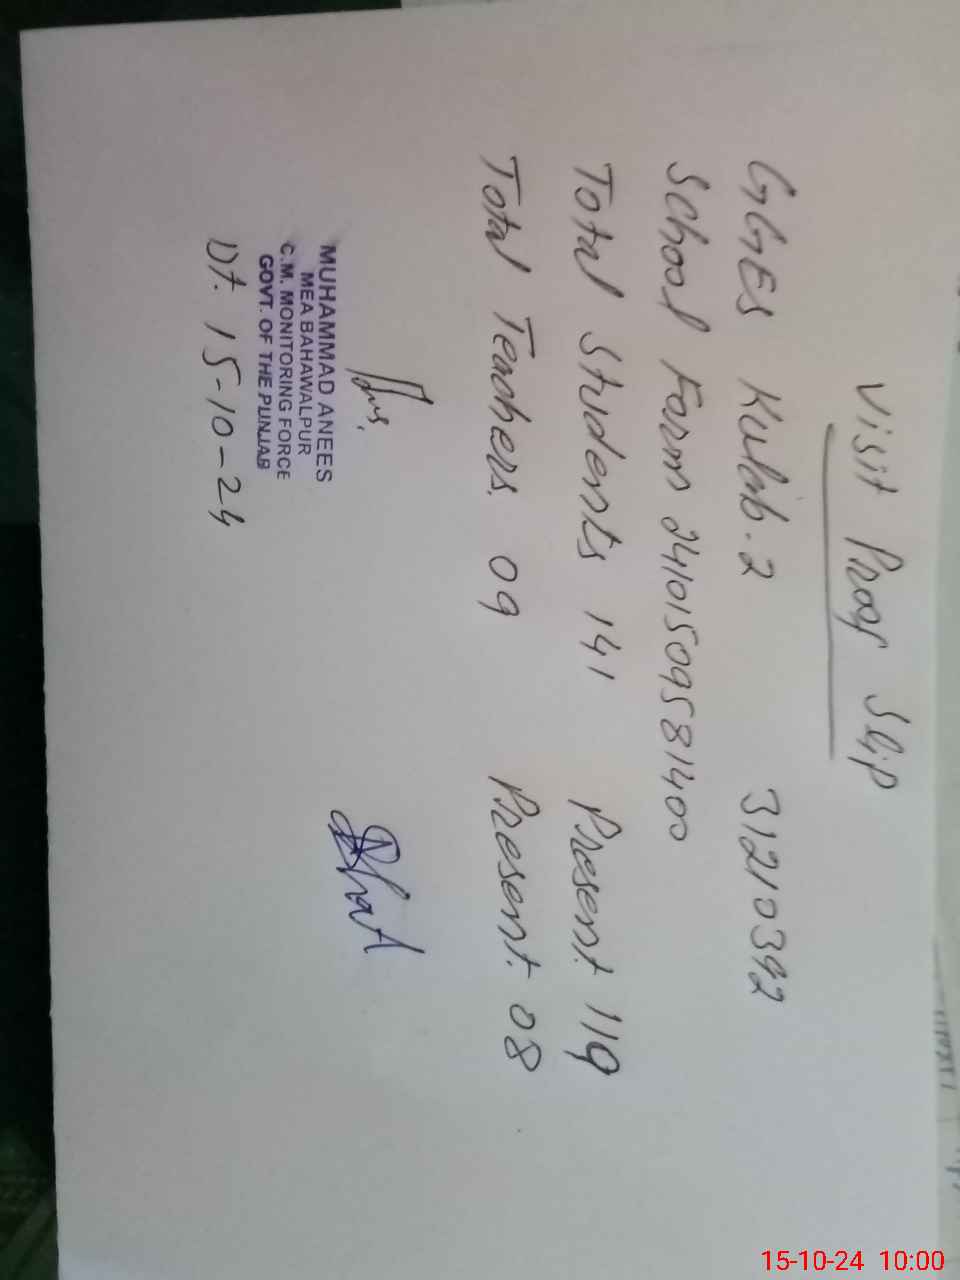 Visit Proof Slip
GGES Kulab.2 31210392
School Form 24101509581400
Total Students 141 Present 119
Total Teachers. 09 Present. 08
MUHAMMAD ANEES
MEA BAHAWALPUR
C.M. MONITORING FORCE
GOVT. OF THE PUNJAB
Dt. 15-10-24
15-10-24 10:00